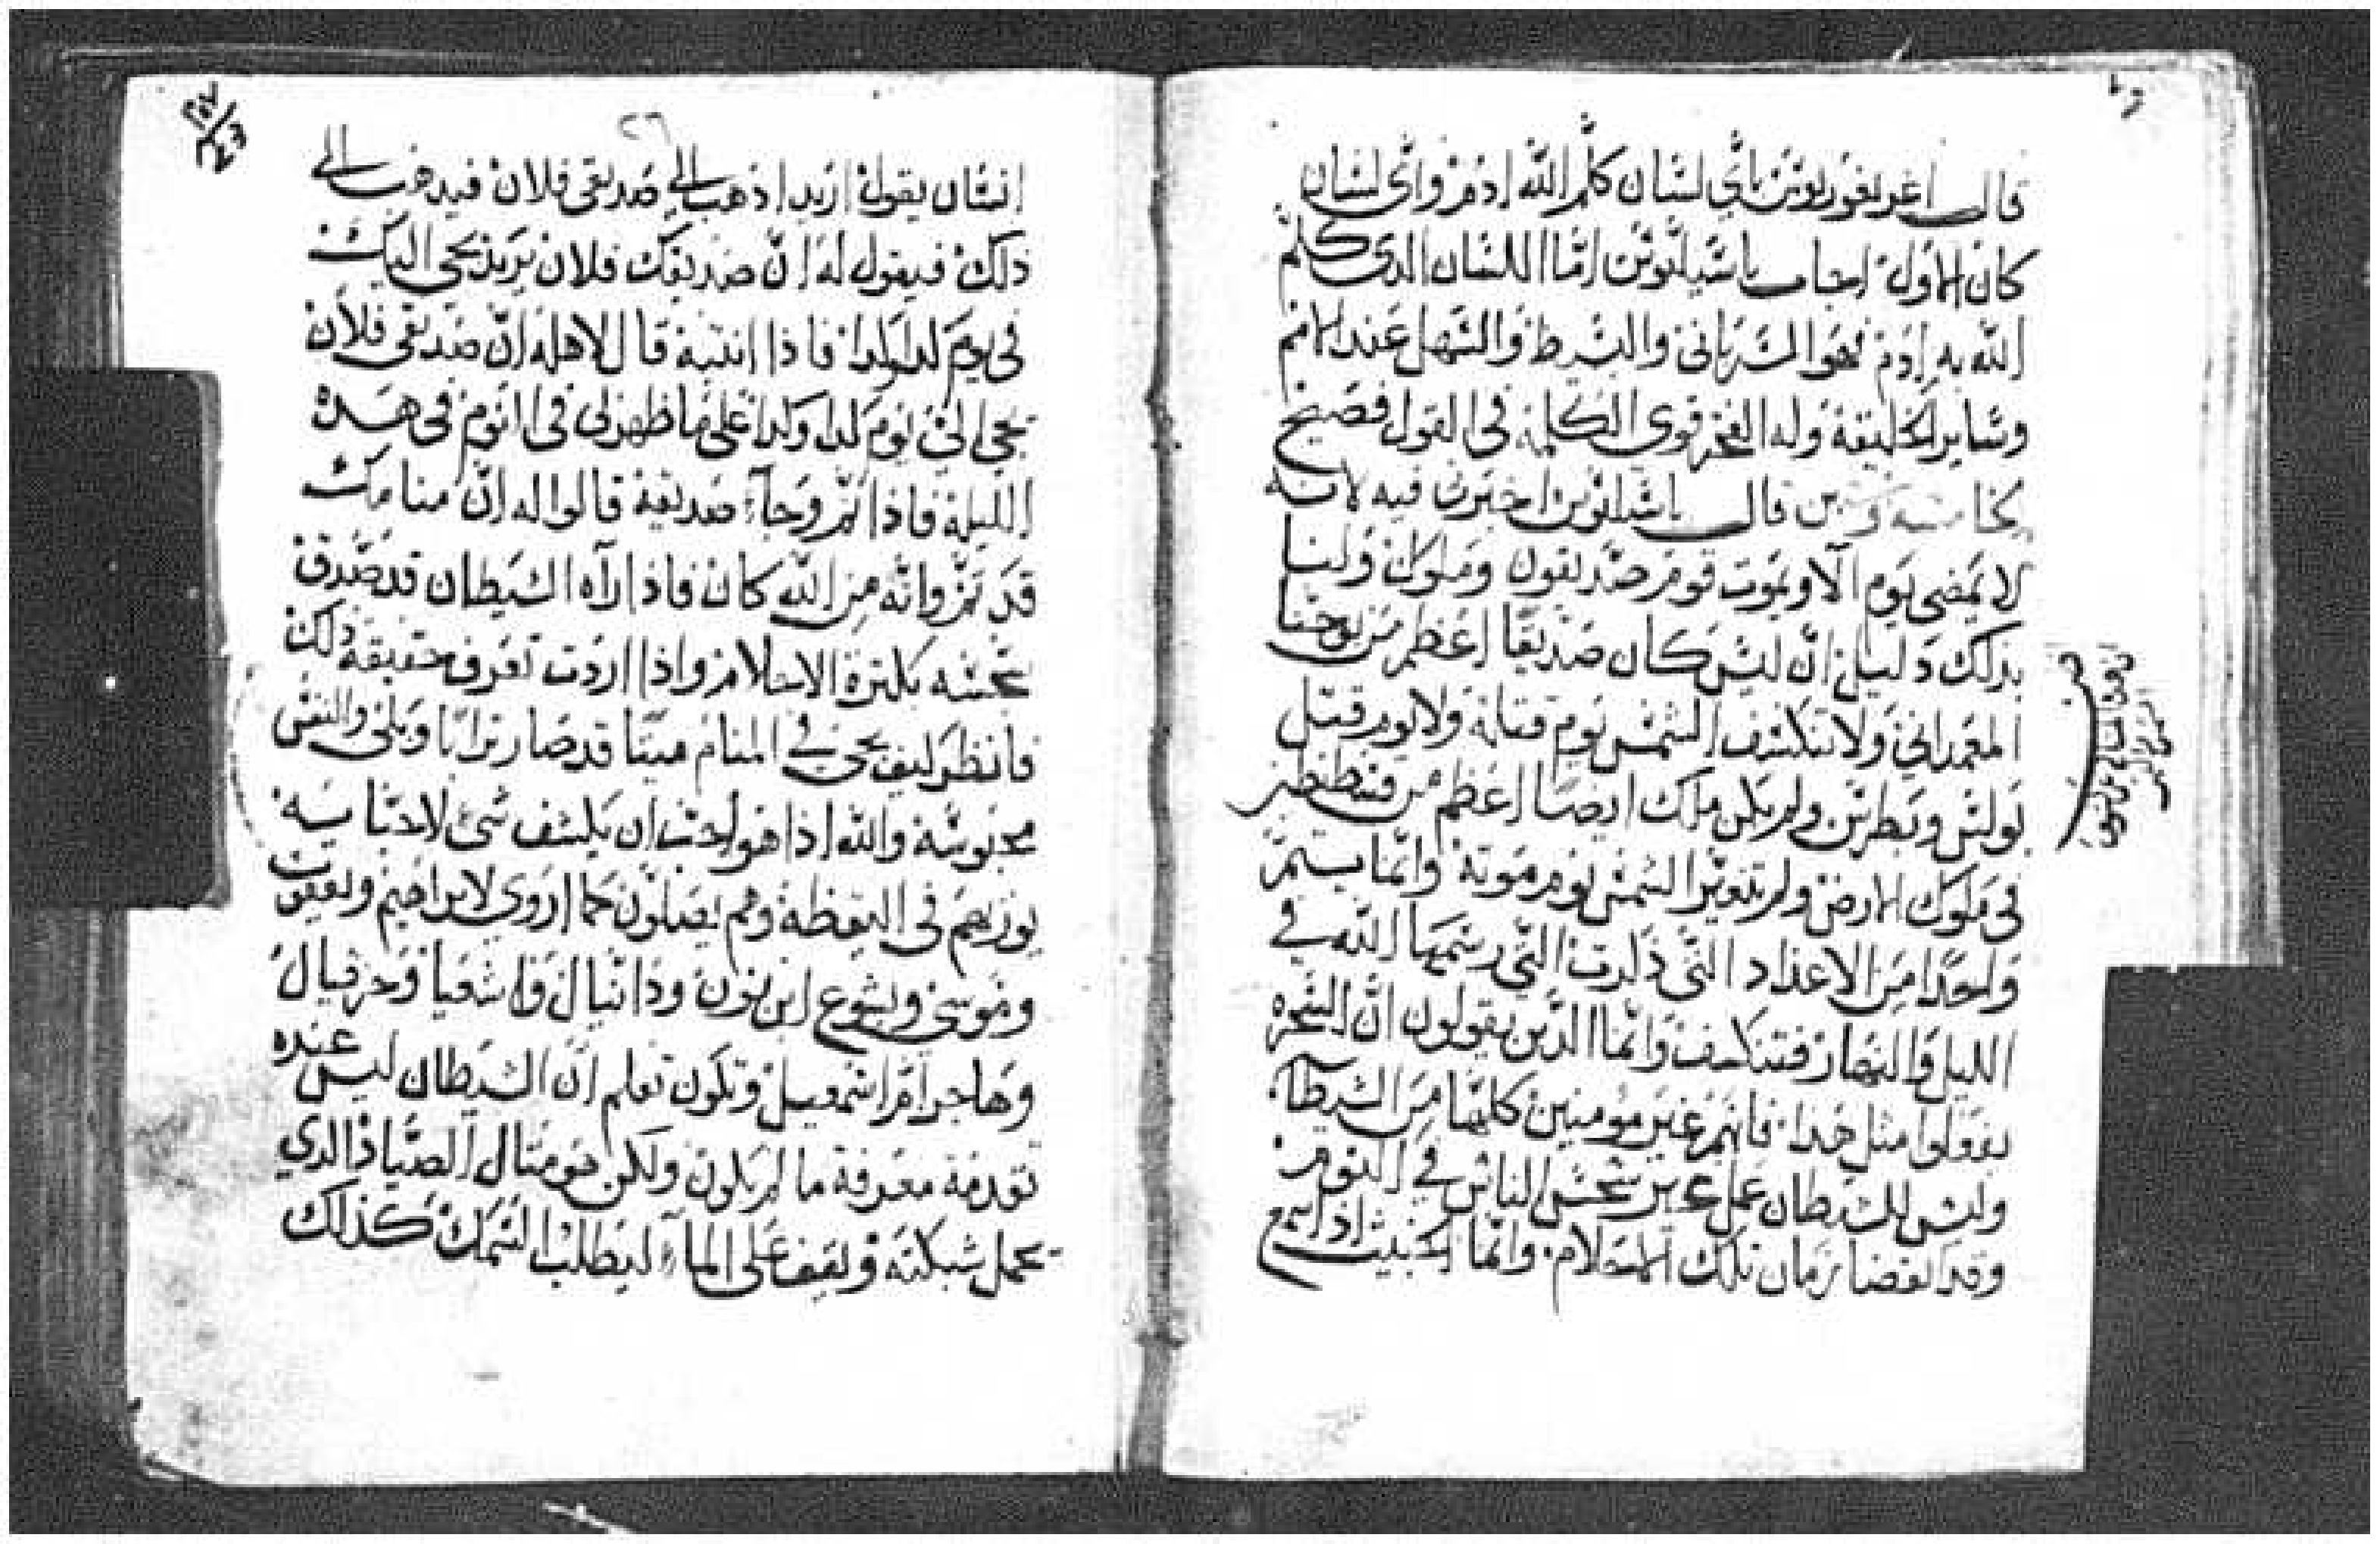 قال اغريغوريوس باي لسان كلم الله ادم واي لسان
كان الاول اجاب باسيليوس امّا اللسان الدى كلم
الله به ادم فهو السرياني والبسط والسهل عند الامم
وساير الخليقة وله الفخر قوى الكلمة في القول فصيح
قال باسيليوس اخبرت فيه لانه
لا يمضى يوم الا ويموت قوم صديقون وملوك ولنا
بذلك دليل ان ليس كان صديقا اعظم من يوحنا
المعمداني ولا تنكسف الشمس يوم قتله ولا يوم قتل
بولس وبطرس ولم يكن ملك ايضا اعظم من قسطنطين
في ملوك الارض ولم تتغير الشمس يوم موته وانما يستمر
واحدا من الاعداد التي ذكرت التي رسمها الله في
الليل والنهار فتنكسف وانما الذين يقولون ان السحره
يفعلوا مثل هذا فانهم غير مومنين كلها من الشيطان
وليس للشيطان عمل غير يحسّ الناس في النوم
وقد انقضا زمان تلك الاحلام وانما الخبيث اذا سمع
٢٦
انسان يقول اريد اذهب الى صديقى فلان فيدهب الى
ذلك فيقول له ان صديقك فلان يريد يجى اليك
في يوم كدا وكدا فاذا انتبه قال لاهله ان صديقى فلان
يجى الىّ يوم كدا وكدا على ما ظهر لى في النوم في هذه
الليلة فاذا تم وجاء صديقه قالوا له ان منامك
قد تم وانه من الله كان فاذا راه الشيطان قد صدق
بكثرة الاحلام واذا اردت تعرف حقيقة ذلك
فانظر كيف يجى في المنام ميتا قد صار ترابا وبلى والنفس
محبوسة والله اذا هو احب ان يكشف شي لاحبايه
يوريهم في اليقظة وهم يصلون كما اروى لابراهيم ويعقوب
وموسى ويشوع ابن نون ودانيال واشعيا وحزقيال
وهاجر ام اسمعيل وتكون تعلم ان الشيطان ليس عنده
تقدمة معرفة ما لم يكون ولكن هو مثال الصياد الدي
يحمل شبكته ويقف على الماء ليطلب السمك كذلك